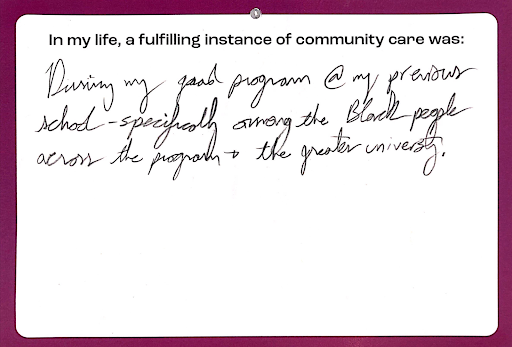 In my life, a fulfilling instance of community care was:
During my grad program @ my previous
school - specifically among the Black people
across the program + the greater university.